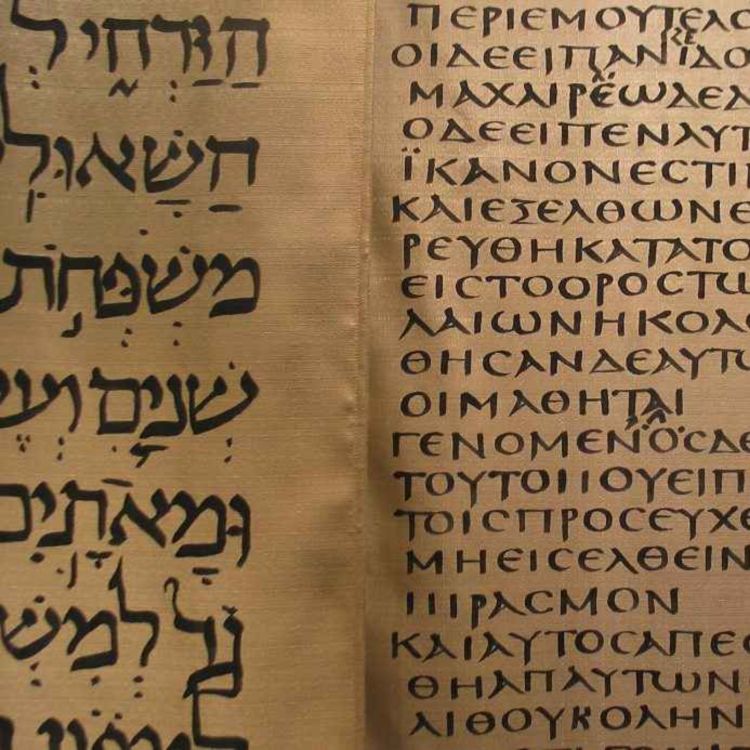 הַזַּרְחִ֑י לְ
הַשָּׁאוּלִ
מִשְׁפְּחֹת
שְׁנַ֧יִם וְעֶשׂ
וּמָאתָֽיִם
גָד לְמִשׁ
ΠΕΡΙΕΜΟΥΤΕΛΟ
ΟΙΔΕΕΙΠΑΝΪΔΟ
ΜΑΧΑΙΡΕΩΔΕΔ
ΟΔΕΕΙΠΕΝΑΥΤ
ΪΚΑΝΟΝΕCΤΙΝ
ΚΑΙΕΞΕΛΘΩΝΕ
ΡΕΥΘΗΚΑΤΑΤΟ
ΕΙCΤΟΟΡΟCΤΩ
ΛΑΙΩΝΗΚΟΛΟ
ΘΗCΑΝΔΕΑΥΤΩ
ΟΙΜΑΘΗΤΑΙ
ΓΕΝΟΜΕΝΟCΔΕ
ΤΟΥΤΟΙΙΟΥΕΙΠ
ΤΟΙCΠΡΟCΕΥΧΕ
ΜΗΕΙCΕΛΘΕΙΝ
ΙΙΙΡΑCΜΟΝ
ΚΑΙΑΥΤΟCΑΠΕC
ΘΗΑΠΑΥΤΩΝ
ΛΙΘΟΥΚΟΛΗΝ